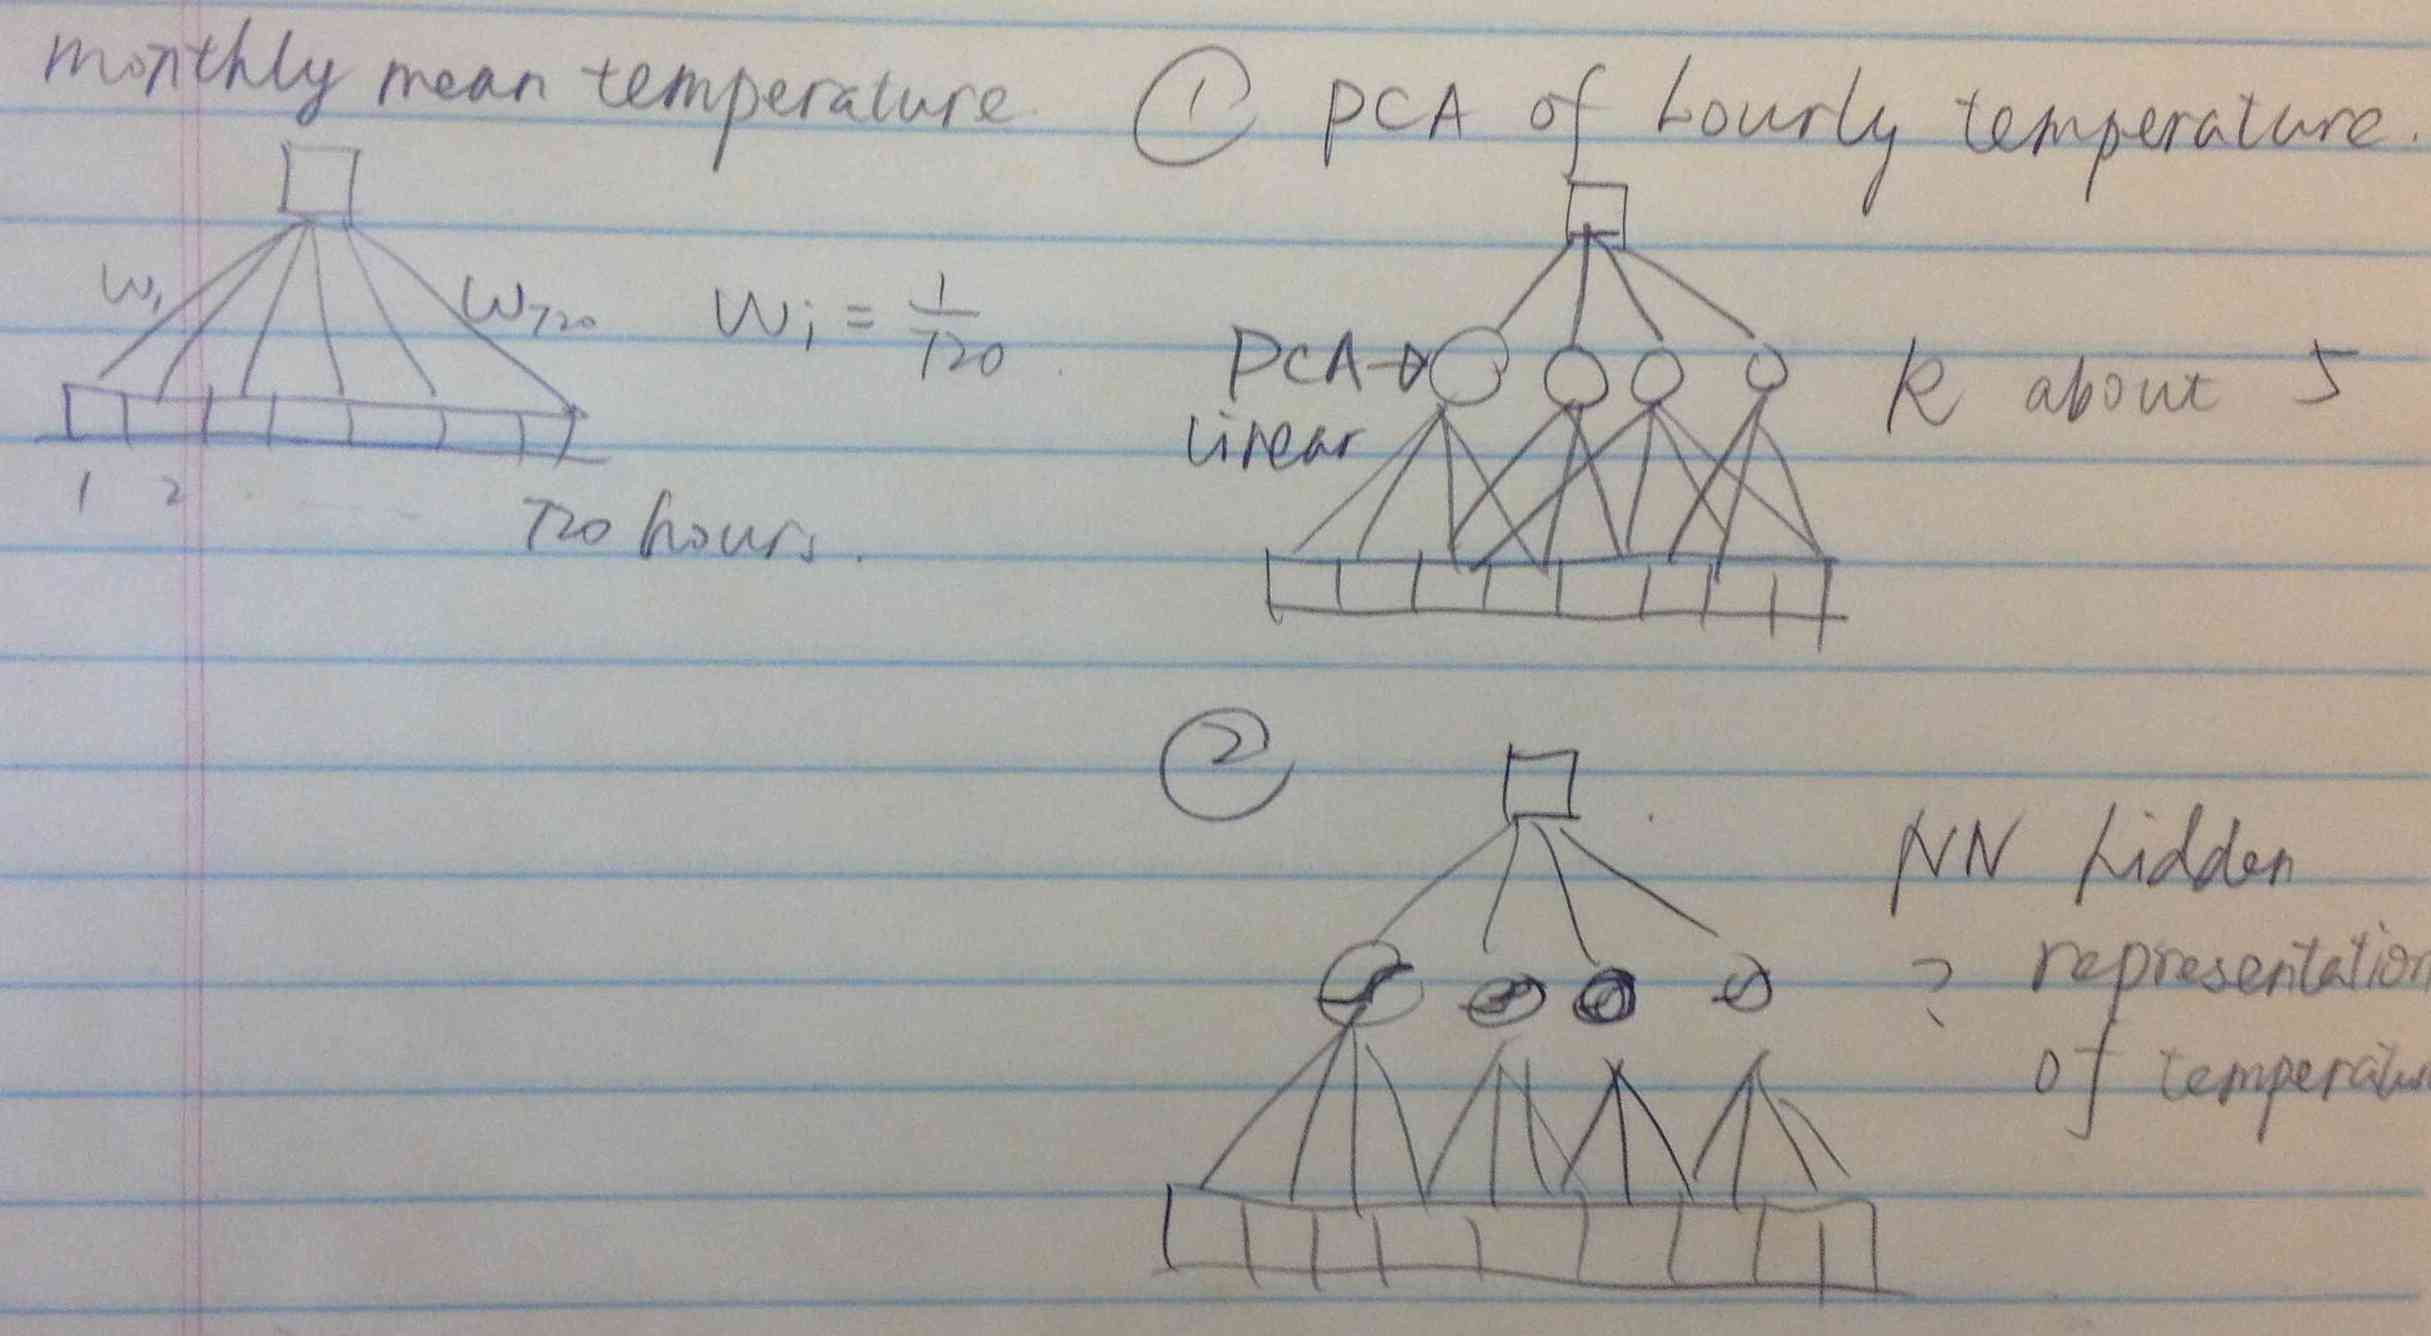 monthly mean temperature
w1 w720 wi = 1/720
1 2 720 hours.
① PCA of hourly temperature.
PCA → k about 5
linear
②
NN hidden
? representation
of temperatu